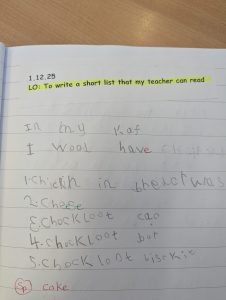 1.12.25
LO: To write a short list that my teacher can read
In my Kaf
I wool have
1. Chickin in
2. Cheese
3. Chockloot
4. Chockloot bar
5. Chockloot
Sp cake